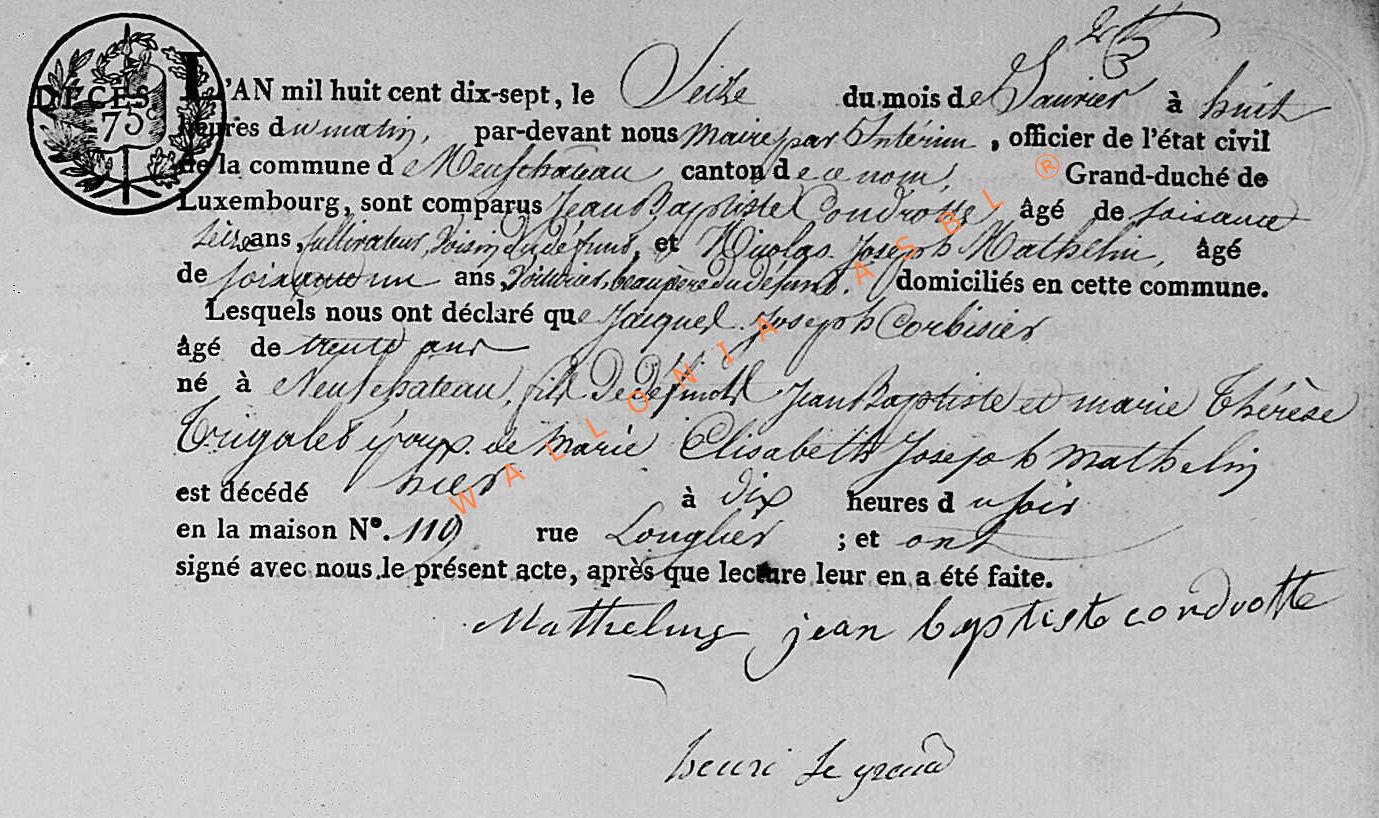 2 B
DÉCÈS
75
L'AN mil huit cent dix-sept, le Seize du mois de Janvier à huit
heures du matin, par-devant nous maire par Intérim, officier de l'état civil
de la commune d e Neufchateau canton d e ce nom, Grand-duché de
Luxembourg, sont comparus Jean Baptiste Condrotte âgé de soisante
seize ans, cultivateur, voisin du défunt, et Nicolas Joseph Mathelin, âgé
de soisante un ans, voiturier, beaupère du défunt. domiciliés en cette commune.
Lesquels nous ont déclaré que Jacques Joseph Corbisier
âgé de trente ans
né à Neufchateau, fils de défunts Jean Baptiste et marie Thérèse
Trigalet époux de Marie Elisabeth Joseph Mathelin
est décédé hier à dix heures d u soir
en la maison N°. 119 rue Longlier ; et ont
signé avec nous le présent acte, après que lecture leur en a été faite.
Mathelin jean baptiste condrotte
henri Le grand
WALLONIA ASBL ®